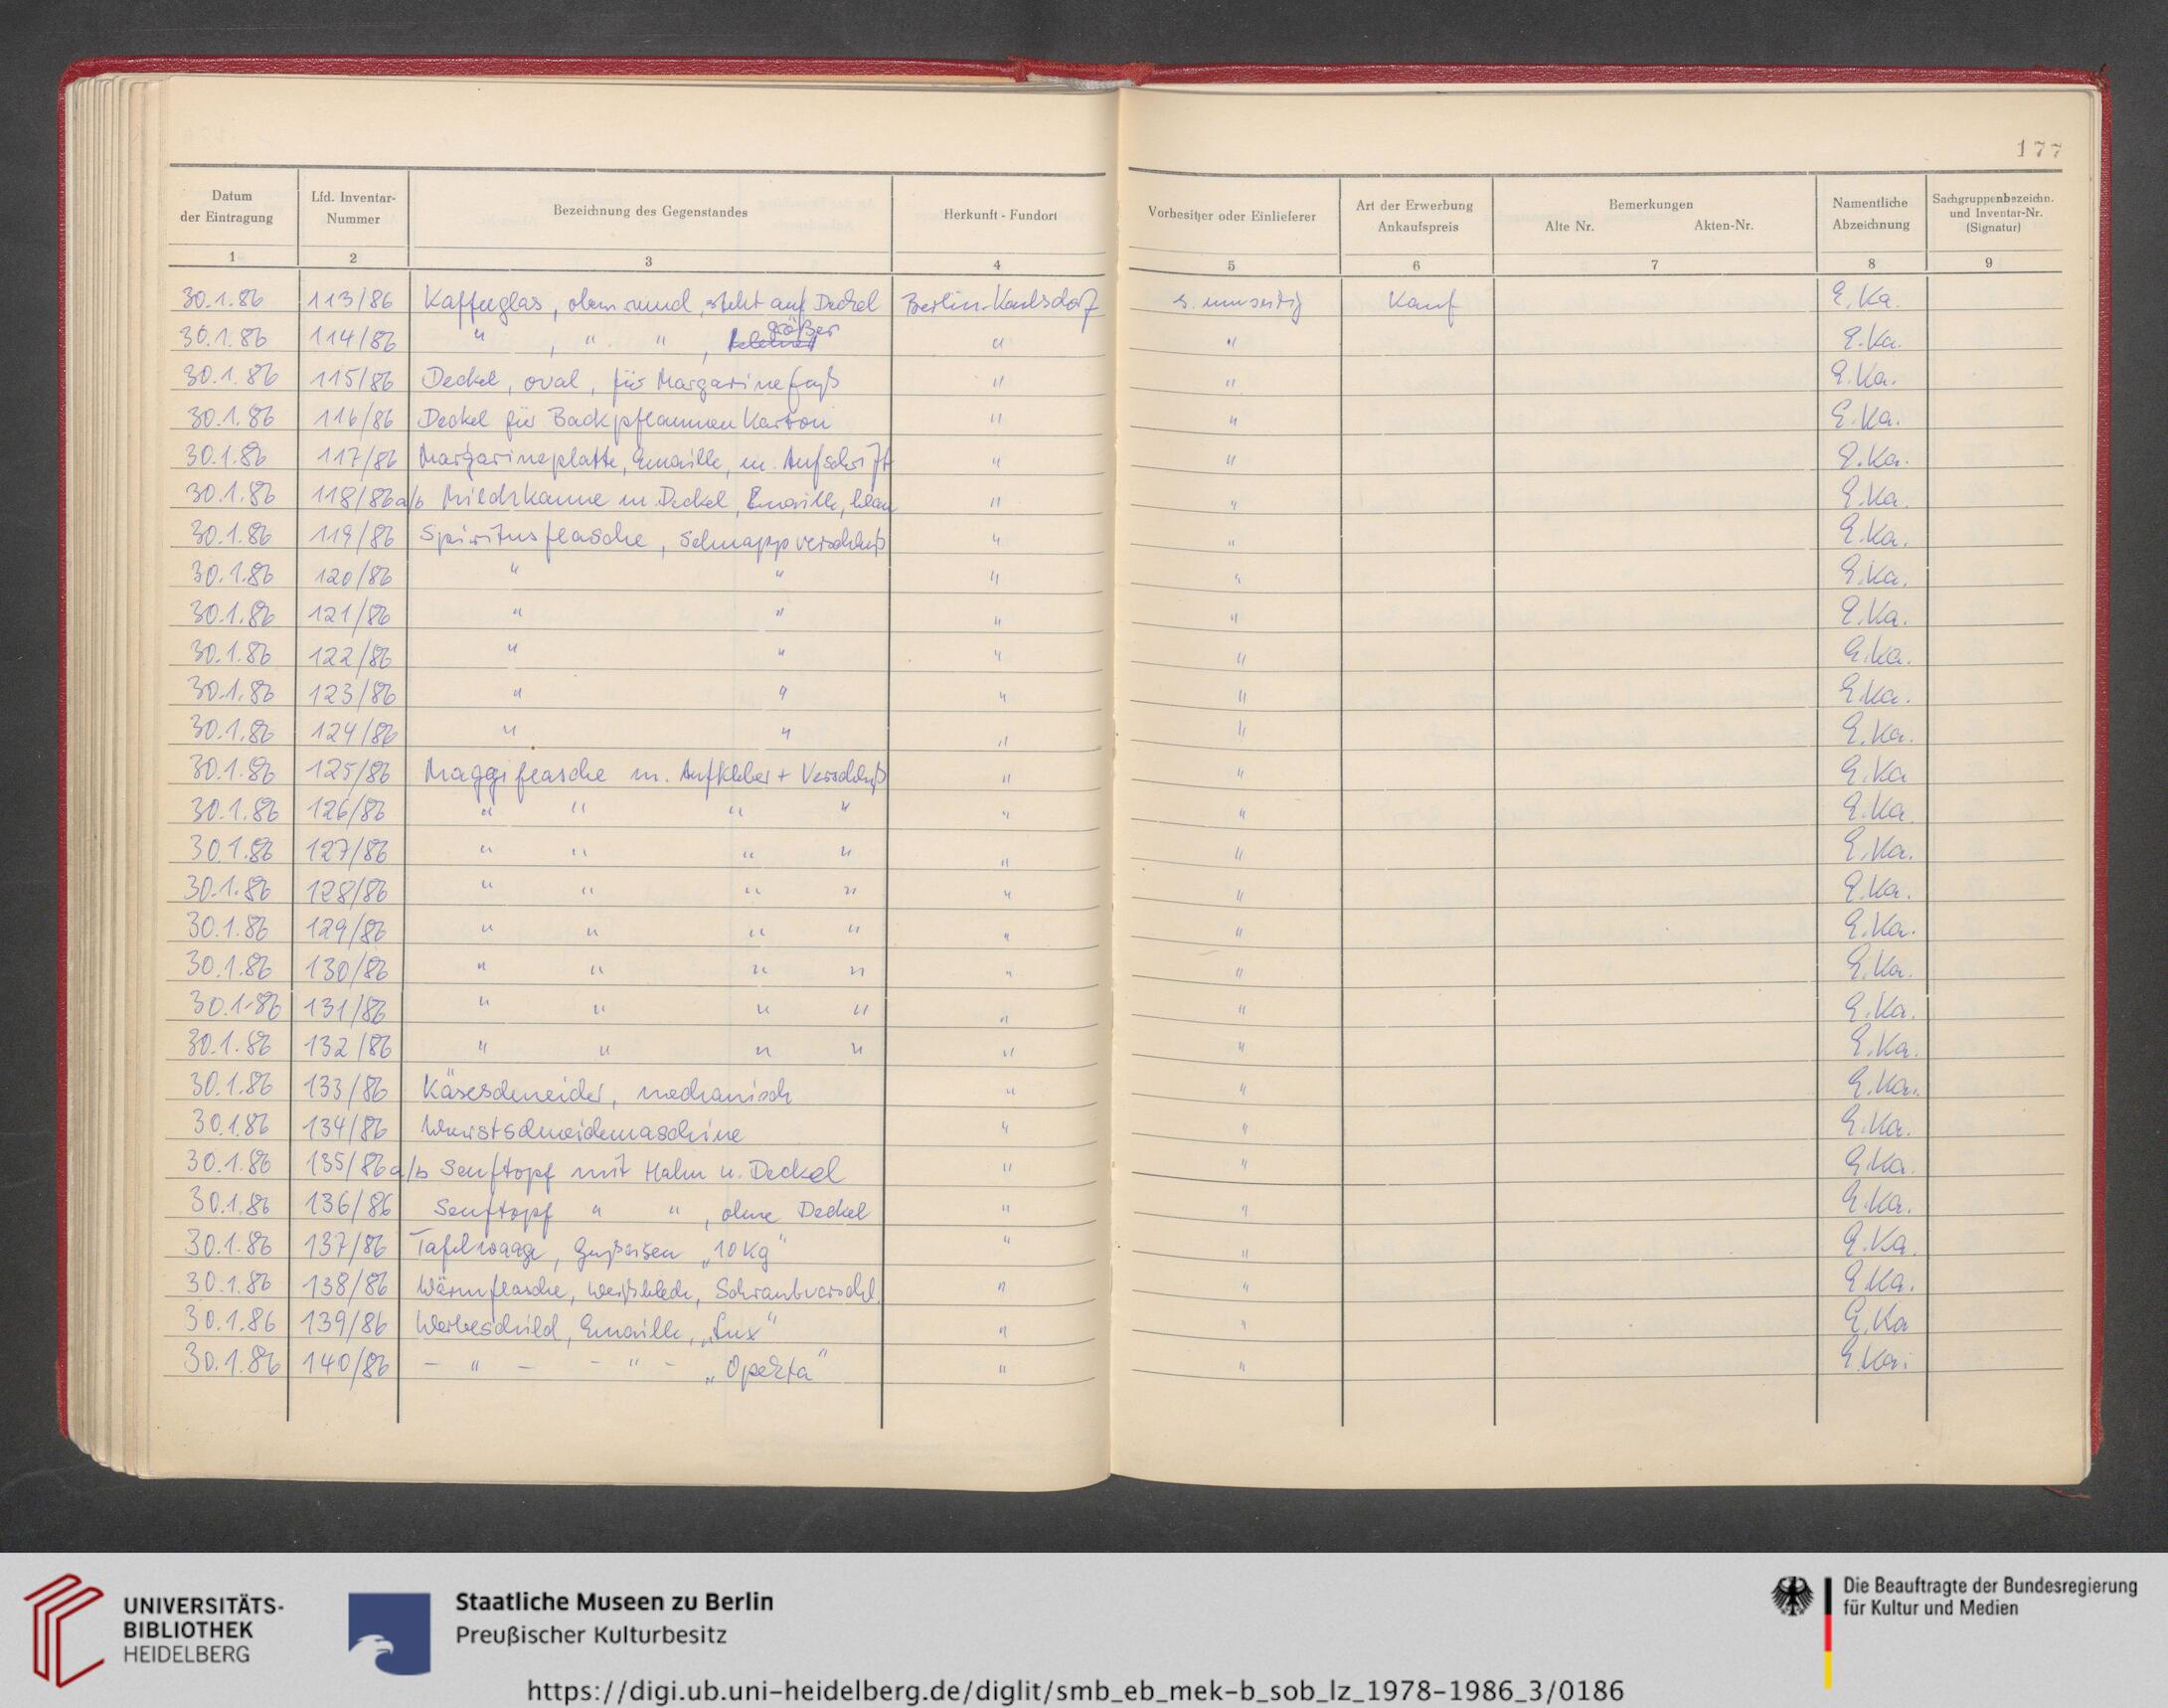 177
Datum der Eintragung | Lfd. Inventar-Nummer | Bezeichnung des Gegenstandes | Herkunft - Fundort | Vorbesitzer oder Einlieferer | Art der Erwerbung Ankaufspreis | Bemerkungen Alte Nr. Akten-Nr. | Namentliche Abzeichnung | Sachgruppenbezeichn. und Inventar-Nr. (Signatur)
1 2 3 4 5 6 7 8 9
30.1.86 113/86 Kaffeeglas, oben rund, steht auf Deckel Berlin-Kaulsdorf s. umseitig Kauf E.Ka.
30.1.86 114/86 " , " " , größer " " E.Ka.
30.1.86 115/86 Deckel, oval, für Margarinefaß " " E.Ka.
30.1.86 116/86 Deckel für Backpflaumen Karton " " E.Ka.
30.1.86 117/86 Margarineplatte, Emaille, m. Aufschrift " " E.Ka.
30.1.86 118/86a/b Milchkanne m. Deckel, Emaille, blau " " E.Ka.
30.1.86 119/86 Spiritusflasche, Schnappverschluß " " E.Ka.
30.1.86 120/86 " " " " E.Ka.
30.1.86 121/86 " " " " E.Ka.
30.1.86 122/86 " " " " E.Ka.
30.1.86 123/86 " " " " E.Ka.
30.1.86 124/86 " " " " E.Ka.
30.1.86 125/86 Maggiflasche m. Aufkleber + Verschluß " " E.Ka
30.1.86 126/86 " " " " " " E.Ka.
30.1.86 127/86 " " " " " " E.Ka.
30.1.86 128/86 " " " " " " E.Ka.
30.1.86 129/86 " " " " " " E.Ka.
30.1.86 130/86 " " " " " " E.Ka.
30.1.86 131/86 " " " " " " E.Ka.
30.1.86 132/86 " " " " " " E.Ka.
30.1.86 133/86 Käseschneider, mechanisch " " E.Ka.
30.1.86 134/86 Wurstschneidemaschine " " E.Ka.
30.1.86 135/86a/b Senftopf mit Hahn u. Deckel " " E.Ka.
30.1.86 136/86 Senftopf " " , ohne Deckel " " E.Ka.
30.1.86 137/86 Tafelwaage, Gußeisen „10 kg" " " E.Ka.
30.1.86 138/86 Wärmflasche, Weißblech, Schraubverschl. " " E.Ka.
30.1.86 139/86 Werbeschild, Emaille, „Lux" " " E.Ka
30.1.86 140/86 - " - - " - „Opekta" " " E.Ka.
UNIVERSITÄTS-
BIBLIOTHEK
HEIDELBERG
Staatliche Museen zu Berlin
Preußischer Kulturbesitz
Die Beauftragte der Bundesregierung
für Kultur und Medien
https://digi.ub.uni-heidelberg.de/diglit/smb_eb_mek-b_sob_lz_1978-1986_3/0186